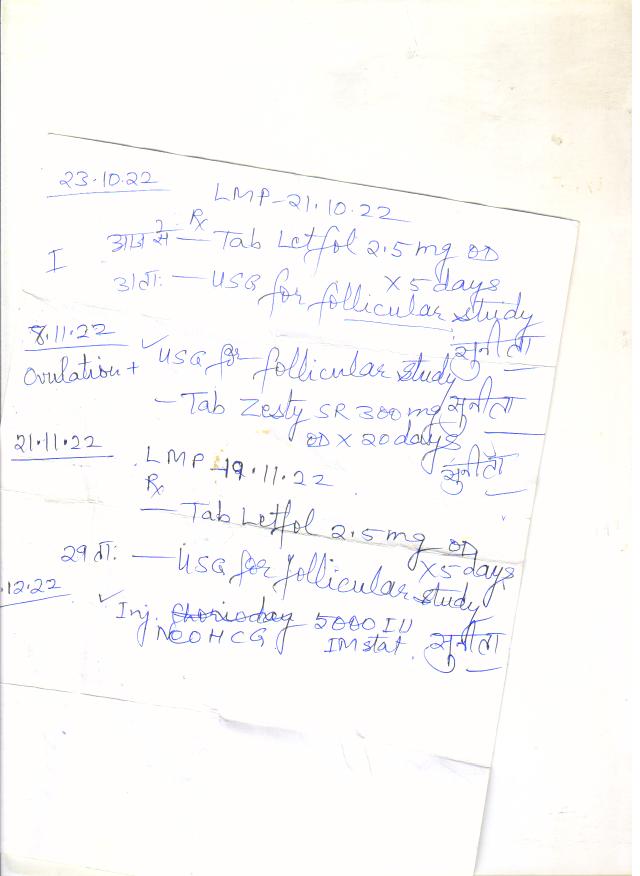 23.10.22
LMP-21.10.22
Rx
I आज से — Tab Letfol 2.5 mg OD
X 5 days
3 ता: — USG for follicular study
सुनीता
8.11.22
Ovulation + ✓ USG for follicular study
— Tab Zesty SR 300 mg सुनीता
OD X 20 days
सुनीता
21.11.22
LMP-19.11.22
Rx
— Tab Letfol 2.5 mg OD
X 5 days
29 ता: — USG for follicular study
.12.22
✓ Inj. 5000 IU
NEO HCG IM stat. सुनीता